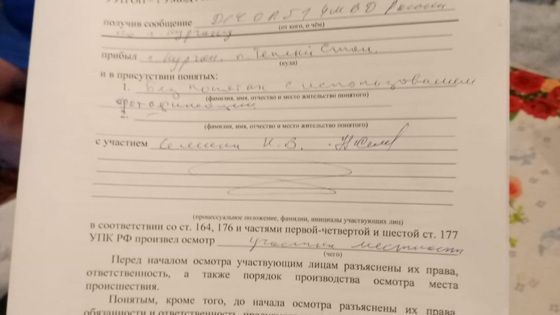 получив сообщение Д/Ч ОП УМВД России
(от кого, о чём)
по г. Кургану
прибыл г. Курган, п. Теплый Стан
(куда)
и в присутствии понятых:
1. Без понятых с использованием
(фамилия, имя, отчество и место жительство понятого)
фотофиксации
2.
(фамилия, имя, отчество и место жительство понятого)
с участием Н.В.
(процессуальное положение, фамилии, инициалы участвующих лиц)
в соответствии со ст. 164, 176 и частями первой-четвертой и шестой ст. 177
УПК РФ произвел осмотр участка местности
(чего)
Перед началом осмотра участвующим лицам разъяснены их права,
ответственность, а также порядок производства осмотра места
происшествия.
Понятым, кроме того, до начала осмотра разъяснены их права
обязанности и ответственность